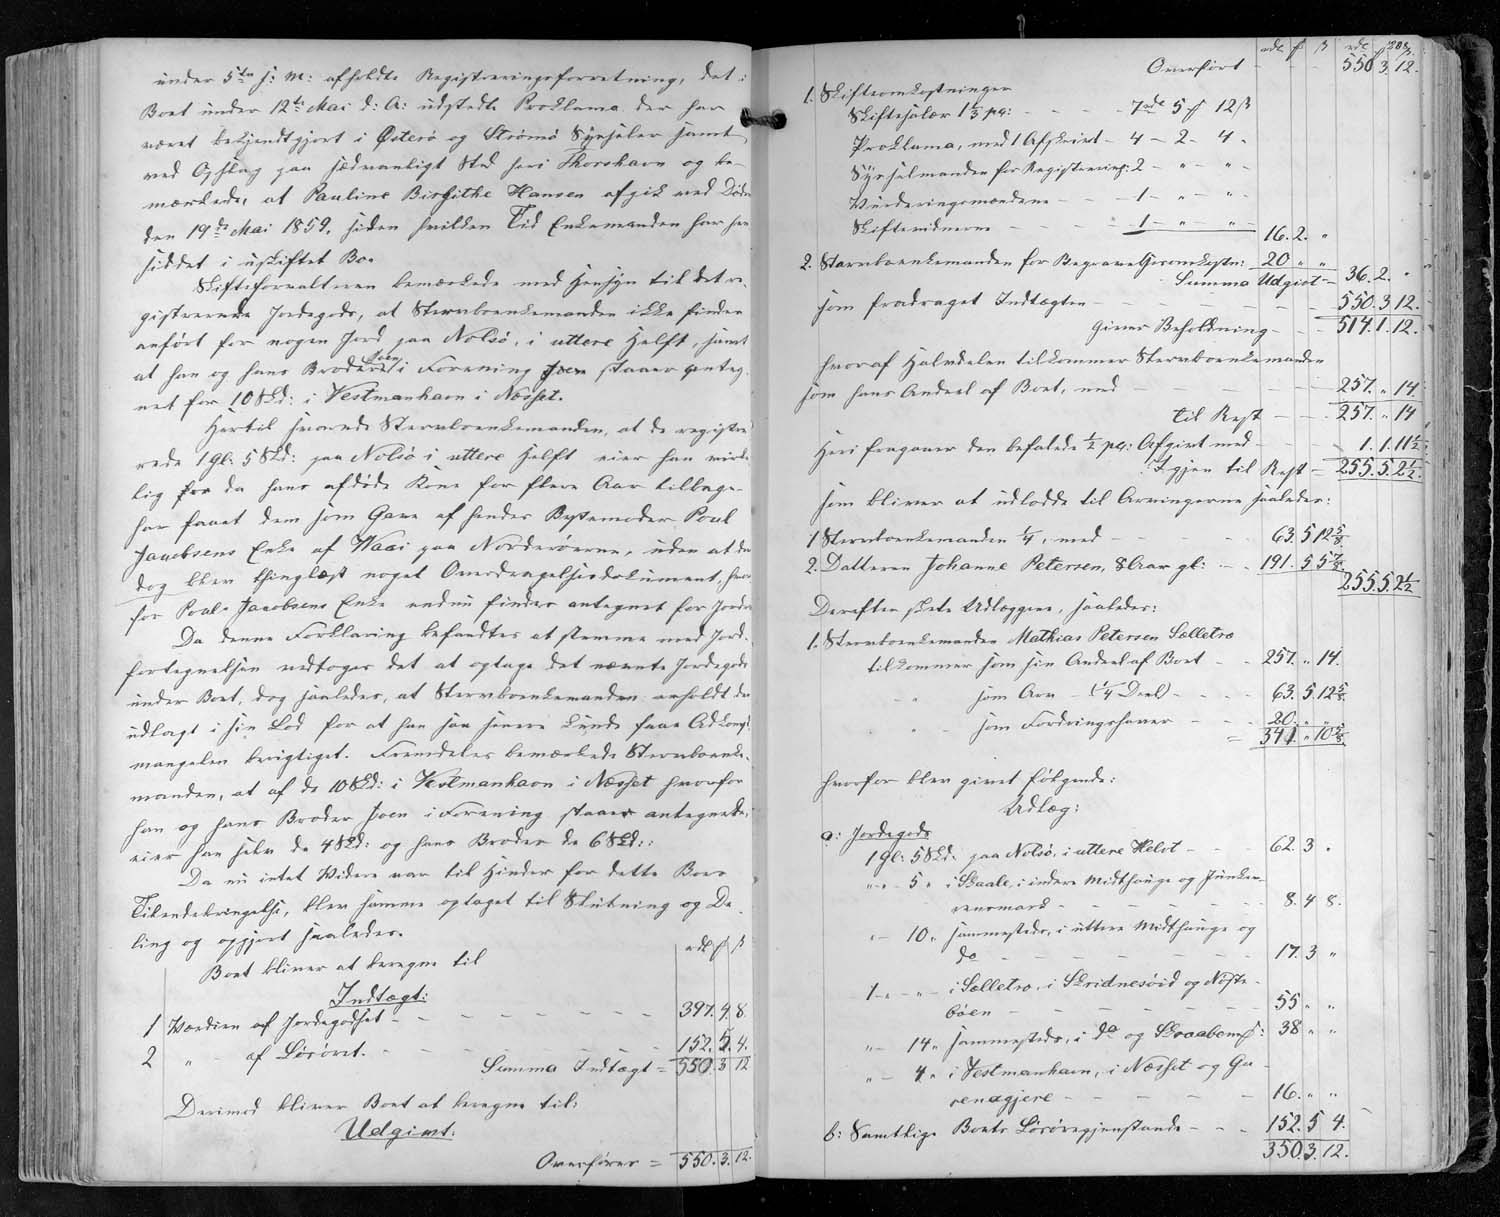 under 5te s: M: afholdte Registreringsforretning, det i
Boet under 12te Mai d: A: udstedte Proklama der har
været bekjendtgjort i Østerø og Strømø Sysseler samt
ved Opslag paa sædvanligt Sted her i Thorshavn og be-
mærkede, at Pauline Birgithe Hansen afgik ved Døde
den 19de Mai 1859, siden hvilken Tid Enkemanden har hen
siddet i uskiftet Bo.
Skifteforvalteren bemærkede med Hensyn til det re-
gistrerede Jordegods, at Stervboenkemanden ikke findes
anført for nogen Jord paa Nolsø, i uttere Helft, samt
at han og hans Broder Joen i Forening staaer anteg-
net for 10 Skd: i Vestmanhavn i Næsset.
Hertil svarede Stervboenkemanden, at de registre-
rede 1 gl: 5 Skd: paa Nolsø i uttere Helft eier han virke
lig for da hans afdøde Kone for flere Aar tilbage
har faaet dem som Gave af hendes Bestemoder Poul
Jacobsens Enke af Waai paa Norderøerne, uden at der
dog blev thinglæst noget Overdragelsesdokument, hvor
for Poul Jacobsens Enke endnu findes antegnet for Jorden
Da denne Forklaring befandtes at stemme med Jord-
fortegnelsen vedtoges det at optage det nævnte Jordegods
under Boet, dog saaledes, at Stervboenkemanden erholdt det
udlagt i sin Lod for at han saa senere kunde faae Adkomst
mangelen berigtiget. Fremdeles bemærkede Stervboenke-
manden, at af de 10 Skd: i Vestmanhavn i Næsset hvorfor
han og hans Broder Joen i Forening staaer antegnede,
eier han selv de 4 Skd: og hans Broder de 6 Skd:.
Da nu intet Videre var til Hinder for dette Boes
Tilendebringelse, blev samme optaget til Slutning og De-
ling og opgjort saaledes.
rdl f ß
Boet bliver at beregne til
Indtægt:
1 Værdien af Jordegodset - - - 397. 4. 8.
2 " - af Løsøret. - - - 152. 5. 4.
Summa Indtægt = 550. 3. 12
Derimod bliver Boet at beregne til:
Udgivt:
Overføres = 550. 3. 12.
rdl f ß rdl f ß
Overført - - - 550 3. 12.
1. Skifteomkostninger
Skiftesalær 1⅓ pCt: - - - 7 rdl 5 f 12 ß
Proklama, med 1 Afskrivt - 4 - 2 - 4 "
Sysselmanden for Registrering: 2 - " - "
Vurderingsmændene - - - 1 - " - "
Skiftevidnerne - - - 1 - " - " 16. 2. "
2. Stervboenkemanden for Begravelsesomkostn: 20 " "
Summa Udgivt - 36. 2. "
som fradraget Indtægten - - - 550. 3 12.
Giver Beholdning - - - 514. 1. 12.
hvoraf Halvdelen tilkommer Stervboenkemanden
som hans Andeel af Boet, med - - - 257. " 14.
til Rest - - - 257. " 14
Heri fragaaer den befalede ½ pCt: Afgivt med - - - 1. 1. 11½
Igjen til Rest - 255. 5. 2½.
som bliver at udlodde til Arvingerne saaledes:
1 Stervboenkemanden ¼, med - - - 63. 5 12⅝
2. Datteren Johanne Petersen, 8 Aar gl: - - 191. 5 5⅞
255. 5. 2½
Derefter skete Udlæggene, saaledes:
1. Stervboenkemanden Mathias Petersen Sælletræ
tilkommer som sin Andeel af Boet - - 257. " 14.
" som Arv - (¼ Deel) - - - 63. 5. 12⅝
" - som Fordringshaver - - - 20. " "
= 341. " 10⅝
hvorfor blev givet følgende:
Udlæg:
a: Jordegods
1 gl: 5 Skd. paa Nolsø, i uttere Helvt - - - 62. 3 "
" - 5 " i Kvale, i indere Midthauge og
- - - 8. 4 8.
" - 10 " sammesteds, i uttere Midthauge og
do - - - 17. 3 "
1 - " - i Sælletræ, i Skridnesøid og Nyste-
bøen - - - 55 " "
" - 14 " sammesteds, i do og - 38 " "
" - 4 " i Vestmanhavn, i Næsset og
- - - 16. " "
b: Samtlige Boets Løsøregjenstande - - - 152. 5 4.
350. 3. 12.